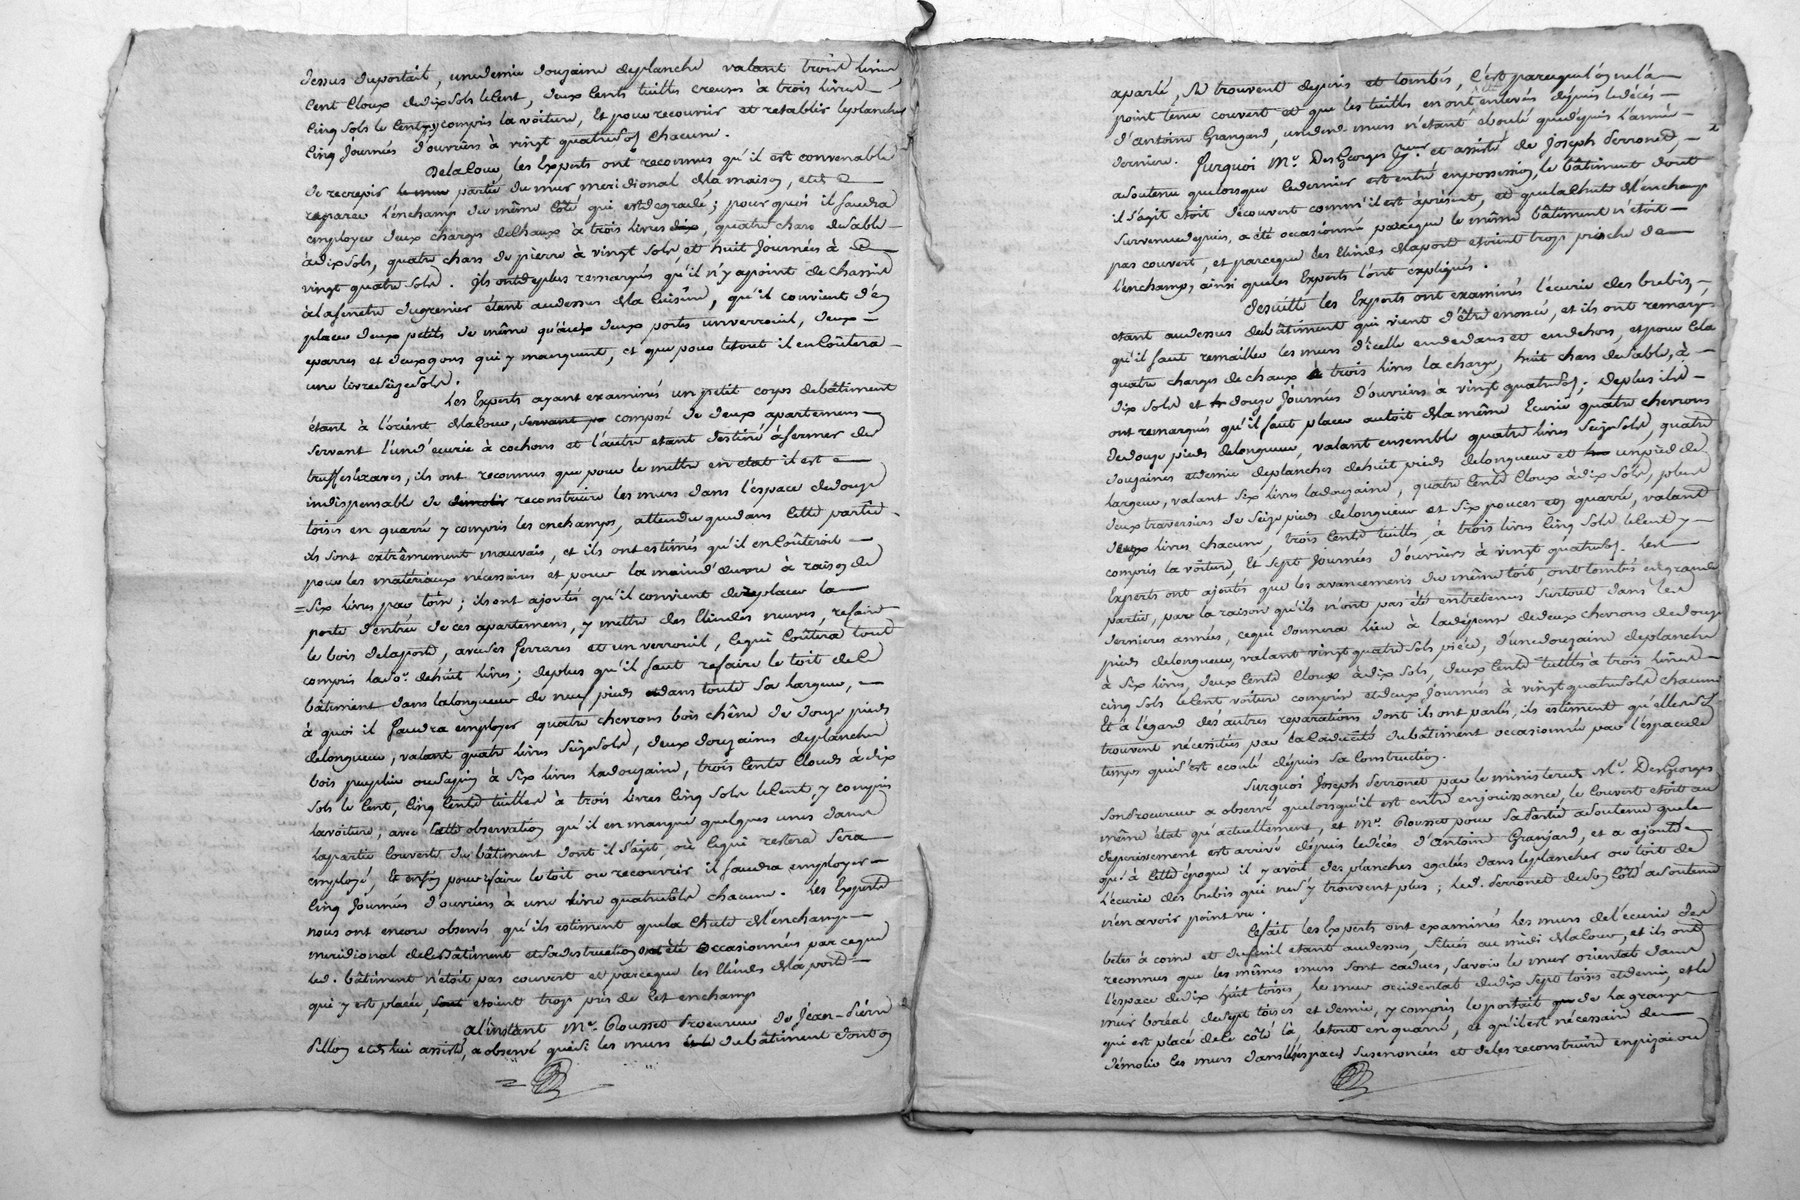 dessus duportait, unedemie douzaine deplanche valant trois livres,
cent Cloux àdixsols lecent, deux Cents tuilles creuses à trois livres
Cinq sols le Cent, y compris la voiture, Et pour recouvrir et retablir leplancher
Cinq Journées d'ouvriers à vingt quatresols Chacune.
Delalour, les Experts ont reconnus qu'il est convenable
de recrepir le mur partie du mur meridional dela maison, et de
reparer l'enchamp du même Côté qui est degradé; pour quoi il faudra
employer deux charges dechaux à trois livres dix, quatre chars desable
àdixsols, quatre chars de pierre à vingt sols, et huit Journées à
vingt quatre sols. Ils ontdeplus remarqués qu'il n'y apoint de chassie
àlafenetre dugrenier étant audessus dela Cuisine, qu'il convient d'en
placer deux petits de même qu'aux deux portes unverrouil, deux
eparres et deuxgons qui y manquent, et que pour letout il en Coûtera
une livre seizesols.
Les Experts ayant examinés un petit corps debâtiment
étant à l'orient delacour, servant pr composé de deux apartemens
servant l'und'ecurie à cochons et l'autre etant destiné àfermer des
truffes , ils ont reconnus que pour le mettre en etat il est
indispensable de demolir reconstruire les murs dans l'espace dedouze
toises en quarré y compris les enchamps, attendu quedans Cette partie
ils sont extrêmement mauvais, et ils ont estimés qu'il en Coûteroit
pour les matériaux nécessaires et pour la maind'œuvre à raison de
Six livres par toise; ils ont ajoutés qu'il convient deréplacer la
porte d'entrée de ces apartemens, y mettre des Elindes neuves, refaire
le bois delaporte, avec ses ferrares et un verrouil, Cequi Coûtera tout
compris lad.e dehuit livres; deplus qu'il faut refaire le toit dud.
bâtiment dans lalongueur de neuf pieds et dans toute sa largeur,
à quoi il faudra employer quatre chevrons bois chêne de douze pieds
delongueur, valant quatre livres Seizesols, deux douzaines deplanches
bois peuplier ousapin à six livres ladouzaine, trois Cents Clouds à dix
sols le Cent, Cinq Cents tuilles à trois livres Cinq sols le Cent, y compris
lavoiture; avec Cette observation qu'il en manque quelques unes dans
lapartie Couverte du bâtiment dont il s'agit, où Cequi restera sera
employé, Et enfin pour refaire le toit ou recouvrir il faudra employer
Cinq Journées d'ouvriers à une livre quatresols chacune. Les Experts
nous ont encore observés qu'ils estiment quela Chute del'enchamp
meridional dece Bâtiment et sa destruction ont été Occasionnées parceque
led. bâtiment n'étoit pas couvert et parceque les Elindes dela porte
qui y est placée, sont etoient trop près de Cet enchamp
a l'instant M.e Rousset Procureur de Jean-Pierre
Pillon et de lui assisté, a observé quesi les murs dudit du bâtiment donton
aparlé, se trouvent depuis et tombés, C'est parceque l'on ne l'a
point tenu couvert et que les tuilles en ont enlevés depuis ledécès
d'antoine Granjard, undesd. murs n'etant eboulé quedepuis l'année
derniere. Surquoi M.e DesGeorges et assisté de Joseph Perronet,
asoutenu quelorsque cedernier est entré enpossession, le bâtiment dont
il s'agit etoit découvert comm'il est àprésent, et quelaChute del'enchamp
survenuedepuis, a été occasionnée parceque le même bâtiment n'étoit
pas couvert, et parceque les Elindes delaporte etoient trop proche de
l'enchamp; ainsi queles Experts l'ont expliqués.
Desuitte les Experts ont examinés l'écurie des brebis,
etant audessus dubâtiment qui vient d'être enoncé, et ils ont remarqués
qu'il faut remailler les murs d'icelle endedans et endehors, et pour Cela
quatre charges de chaux à trois livres la charge, huit chars desable, à
dix sols et douze Journées d'ouvriers à vingt quatresols; Deplus ils
ont remarqués qu'il faut placer autoit dela même Ecurie quatre chevrons
dedouze pieds delongueur, valant ensemble quatre livres Seizesols, quatre
douzaines etdemie deplanches dehuit pieds delongueur et unpied de
largeur, valant six livres ladouzaine, quatre Cents Cloux àdix sols, plus
deux traversiers de seize pieds delongueur et six pouces en quarré, valant
deux livres chacune, trois Cents tuilles, à trois livres Cinq sols leCent y
compris la voiture, Et sept Journées d'ouvriers à vingt quatresols. Les
Experts ont ajoutés que les avancemens du même toit, ont tombés engrande
partie, par la raison qu'ils n'ont pas été entretenus surtout dans les
dernieres années, cequi donnera lieu à ladépense de deux chevrons dedouze
pieds delongueur, valant vingt quatre sols piece, d'unedouzaine deplanches
à six livres, deux Cents Cloux àdix sols, deux Cents tuilles à trois livres
cinq sols leCent voiture comprise et deux Journées à vingt quatresols chacune
Et à l'égard des autres reparations dont ils ont parlés, ils estiment qu'elles se
trouvent nécessitées par la Caducité dubâtiment occasionnée par l'espace de
temps qui s'est ecoulé depuis sa Construction.
Surquoi Joseph Perronet par le ministere de M.e DesGeorges
son Procureur a observé quelorsqu'il est entré enjouissance, le Couvert etoit au
même état qu'actuellement, et M.e Rousset pour sa Partie asoutenu quele
déperissement est arrivé depuis ledécès d'antoine Granjard, et a ajouté
qu'à Cette époque il y avoit des planches egalées dans leplancher ou toit de
l'écurie des brebis qui nes'y trouvent plus; led. Perronet deson Côté asoutenu
n'en avoir point vu.
Cefait les Experts ont examinés les murs de l'écurie des
betes à corne et dufenil etant audessus, situés au midi delacour, et ils ont
reconnus que les mêmes murs sont caducs, savoir le mur oriental dans
l'espace dedix huit toises, le mur occidental dedix sept toises et demie, et le
mur boréal desept toises et demie, y compris leportait que de la grange
qui est placé dece côté là, letout en quarré, et qu'ilest nécessaire de
démolir les murs dans l'espace susenoncées et deles reconstruire enpizai ou